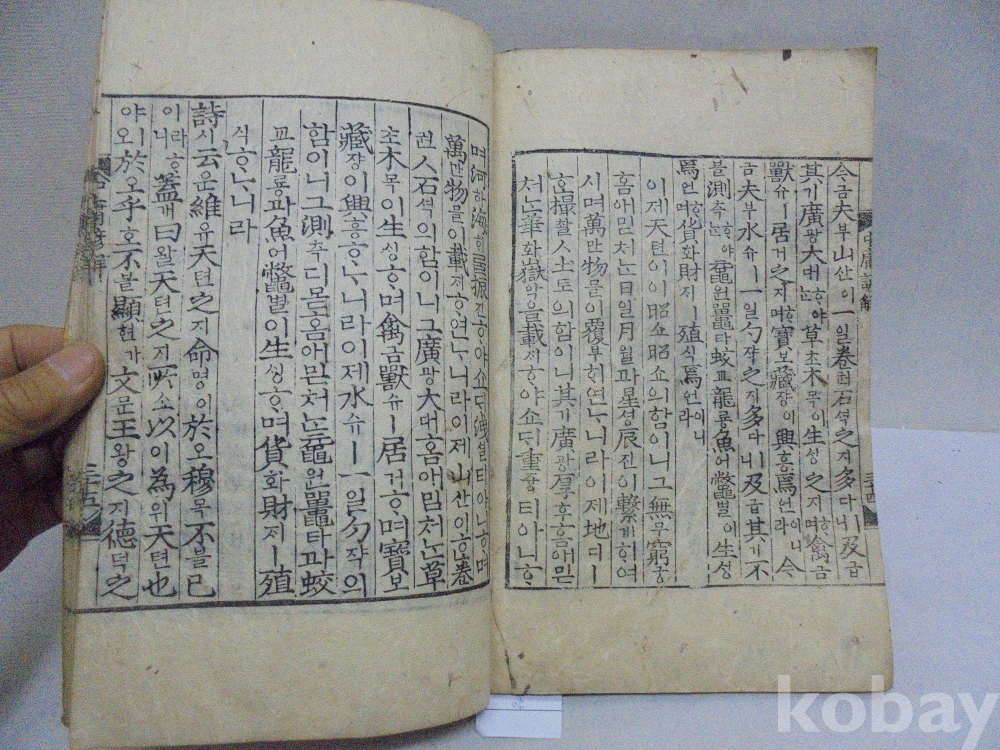 今금夫부山산이一일卷권石셕之지多다ㅣ니及급
其기廣광大대ᄒᆞ야ᄂᆞᆫ草초木목이生ᄉᆡᆼ之지ᄒᆞ며禽금
獸슈ㅣ居거之지ᄒᆞ며寶보藏장이興흥焉언이니라今
금夫부水슈ㅣ一일勺쟉之지多다ㅣ니及급其기不
블測측ᄒᆞ야ᄂᆞᆫ黿원鼉타蛟교龍룡魚어鼈별이生ᄉᆡᆼ
焉언ᄒᆞ며貨화財ᄌᆡㅣ殖식焉언이니라
이제天텬이이昭쇼昭쇼의함이니그無무窮궁
홈애밋처ᄂᆞᆫ日일月월과星셩辰진이繫계ᄒᆞ여
시며萬만物물이覆부ᄒᆞ연ᄂᆞ니라이제地디ㅣ
ᄒᆞᆫ撮찰土토의함이니其기廣광厚후홈애믿
처ᄂᆞᆫ華화嶽악을載ᄌᆡᄒᆞ야쇼ᄃᆡ重듕티아니ᄒᆞ
며河하海ᄒᆡ振진ᄒᆞ야쇼ᄃᆡ洩셜티아니ᄒᆞ며
萬만物믈이載ᄌᆡᄒᆞ연ᄂᆞ니라이제山산이ᄒᆞᆫ卷
권人石셕의함이니그廣광大대홈애밋처ᄂᆞᆫ草
초木목이生ᄉᆡᆼᄒᆞ며禽금獸슈ㅣ居거ᄒᆞ며寶보
藏장이興흥ᄒᆞᄂᆞ니라이제水슈ㅣ一일勺쟉의
함이니그測측디몯홈애믿처ᄂᆞᆫ黿원鼉타과蛟
교龍룡과魚어鼈별이生ᄉᆡᆼᄒᆞ며貨화財ᄌᆡㅣ殖
식ᄒᆞᄂᆞ니라
詩시云운維유天텬之지命명이於오穆목不블已
이라ᄒᆞ니蓋개曰왈天텬之지所소以이爲위天텬也
야ㅣ오於오乎호不블顯현가文문王왕之지德덕之
中庸諺解
kobay